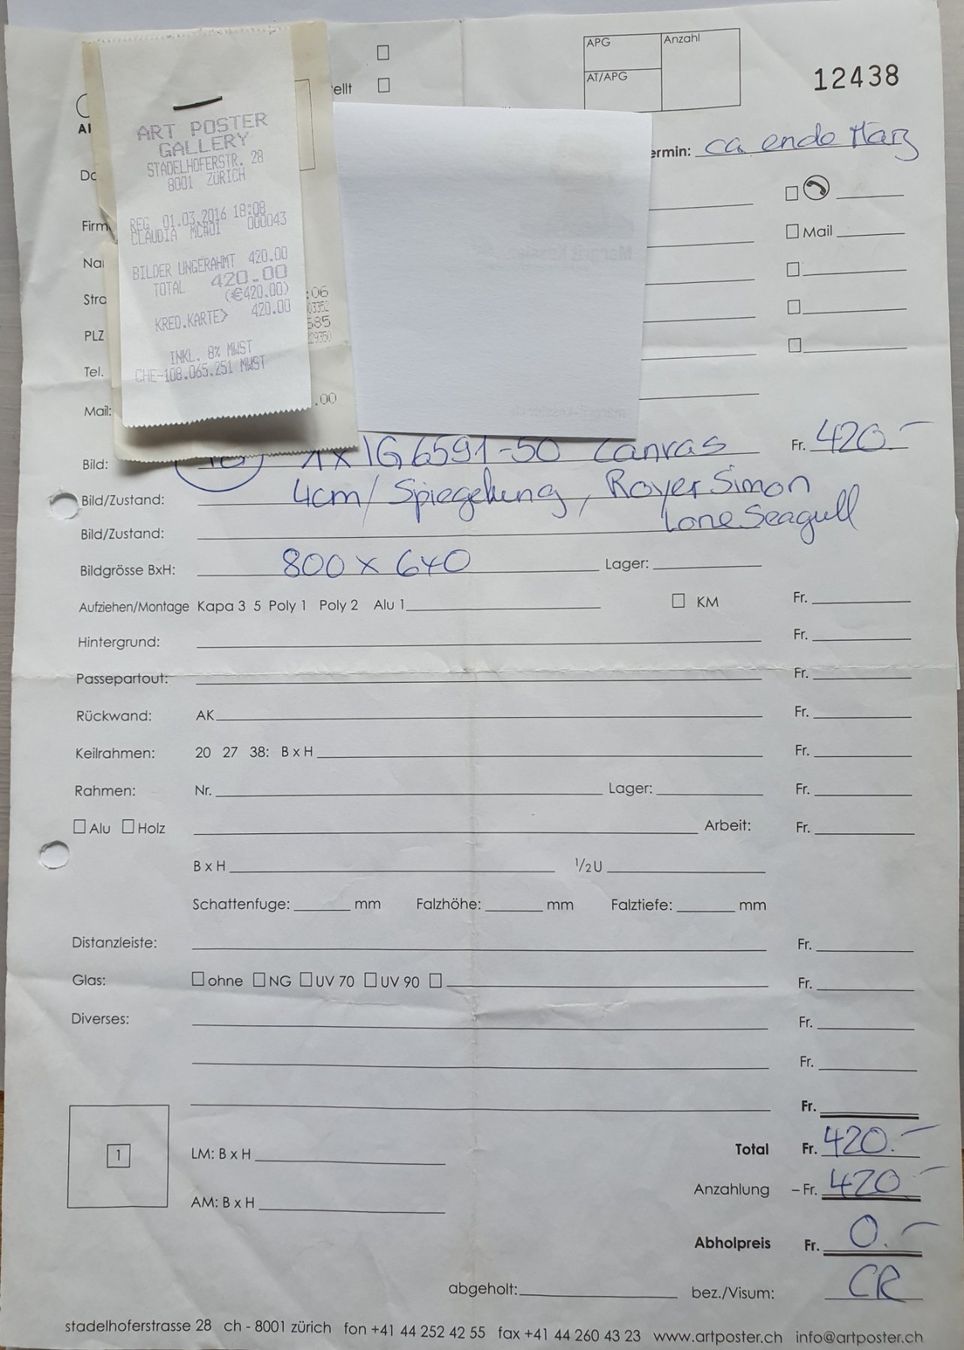 APG
Anzahl
ellt
AT/APG
12438
ART POSTER
GALLERY
STADELHOFERSTR. 28
8001 ZÜRICH
ermin: ca ende März
REG 01.03.2016 18:08
CLAUDIA 000043
Firm
Mail
BILDER UNGERAHMT 420.00
TOTAL 420.00
(€420.00)
KRED.KARTE> 420.00
Stra
PLZ
INKL. 8% MWST
CHE-108.065.251 MWST
Tel.
Mail:
.00
Bild: 1x IG 6591-50 Canvas Fr. 420.–
Bild/Zustand: 4cm/Spiegelung, Royer Simon
Lone Seagull
Bild/Zustand:
Bildgrösse BxH: 800 x 640 Lager:
Aufziehen/Montage Kapa 3 5 Poly 1 Poly 2 Alu 1 KM Fr.
Hintergrund: Fr.
Passepartout: Fr.
Rückwand: AK Fr.
Keilrahmen: 20 27 38: B x H Fr.
Rahmen: Nr. Lager: Fr.
Alu Holz Arbeit: Fr.
B x H 1/2 U
Schattenfuge: mm Falzhöhe: mm Falztiefe: mm
Distanzleiste: Fr.
Glas: ohne NG UV 70 UV 90 Fr.
Diverses: Fr.
Fr.
Fr.
1 LM: B x H Total Fr. 420.–
Anzahlung – Fr. 420.–
AM: B x H
Abholpreis Fr. 0.–
abgeholt: bez./Visum: CR
stadelhoferstrasse 28 ch - 8001 zürich fon +41 44 252 42 55 fax +41 44 260 43 23 www.artposter.ch info@artposter.ch